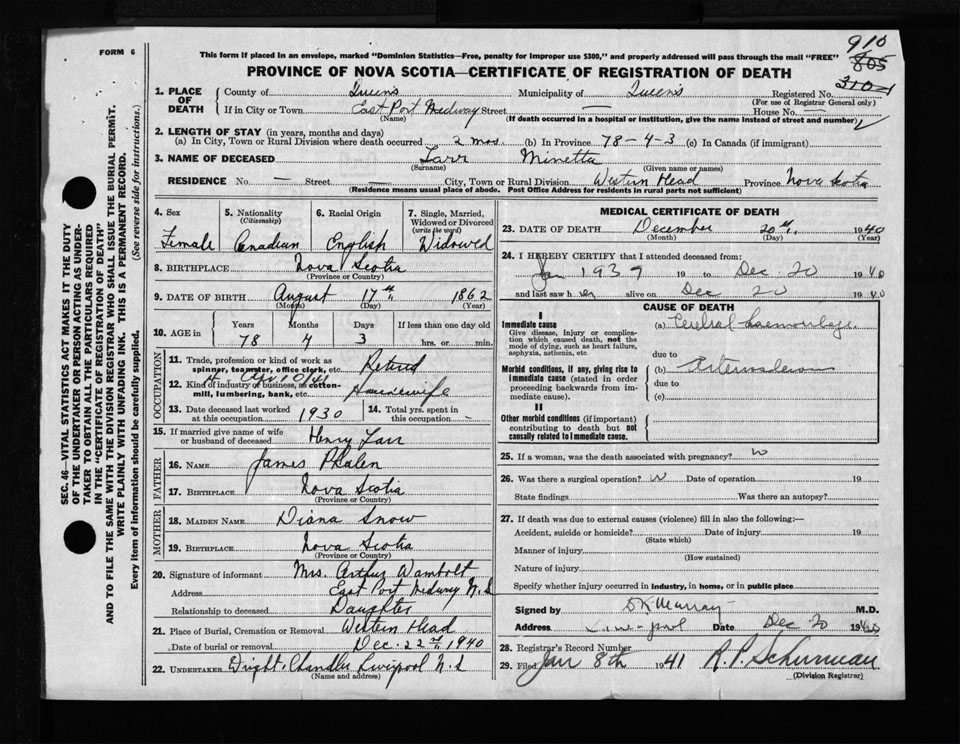 FORM 6
This form if placed in an envelope, marked "Dominion Statistics—Free, penalty for improper use $300," and properly addressed will pass through the mail "FREE"
910
805
3102
PROVINCE OF NOVA SCOTIA—CERTIFICATE OF REGISTRATION OF DEATH
SEC. 46—VITAL STATISTICS ACT MAKES IT THE DUTY
OF THE UNDERTAKER OR PERSON ACTING AS UNDER-
TAKER TO OBTAIN ALL THE PARTICULARS REQUIRED
IN THE "CERTIFICATE OF REGISTRATION OF DEATH"
AND TO FILE THE SAME WITH THE DIVISION REGISTRAR WHO SHALL ISSUE THE BURIAL PERMIT.
WRITE PLAINLY WITH UNFADING INK. THIS IS A PERMANENT RECORD.
Every item of information should be carefully supplied. (See reverse side for instructions.)
1. PLACE OF DEATH
County of Queens Municipality of Queens Registered No.
(For use of Registrar General only)
If in City or Town East Port Medway Street — House No. —
(Name) (If death occurred in a hospital or institution, give the name instead of street and number)
2. LENGTH OF STAY (in years, months and days)
(a) In City, Town or Rural Division where death occurred 2 mos. (b) In Province 78-4-3 (c) In Canada (if immigrant)
3. NAME OF DECEASED Tarr Minetta
(Surname) (Given name or names)
RESIDENCE No. — Street — City, Town or Rural Division Western Head Province Nova Scotia
(Residence means usual place of abode. Post Office Address for residents in rural parts not sufficient)
4. Sex Female
5. Nationality (Citizenship) Canadian
6. Racial Origin English
7. Single, Married, Widowed or Divorced (write the word) Widowed
8. BIRTHPLACE Nova Scotia
(Province or Country)
9. DATE OF BIRTH August 17th 1862
(Month) (Day) (Year)
10. AGE in Years Months Days If less than one day old
78 4 3 hrs. or min.
OCCUPATION
11. Trade, profession or kind of work as spinner, teamster, office clerk, etc. Retired
12. Kind of industry or business, as cotton-mill, lumbering, bank, etc. Housewife
13. Date deceased last worked at this occupation 1930
14. Total yrs. spent in this occupation —
15. If married give name of wife or husband of deceased Henry Tarr
FATHER
16. NAME James Phalen
17. BIRTHPLACE Nova Scotia
(Province or Country)
MOTHER
18. MAIDEN NAME Diana Snow
19. BIRTHPLACE Nova Scotia
(Province or Country)
20. Signature of informant Mrs. Arthur Wambolt
Address East Port Medway N.S
Relationship to deceased Daughter
21. Place of Burial, Cremation or Removal Western Head
Date of burial or removal Dec. 22nd 1940
22. UNDERTAKER Dwight Chandler Liverpool N.S
(Name and address)
MEDICAL CERTIFICATE OF DEATH
23. DATE OF DEATH December 20th 1940
(Month) (Day) (Year)
24. I HEREBY CERTIFY that I attended deceased from:
Jan 1939 19 to Dec 20 1940
and last saw her alive on Dec 20 1940
CAUSE OF DEATH
I
Immediate cause
Give disease, injury or complication which caused death, not the mode of dying, such as heart failure, asphyxia, asthenia, etc.
(a) Cerebral haemorrhage
due to
Morbid conditions, if any, giving rise to immediate cause (stated in order proceeding backwards from immediate cause).
(b)
due to
(c)
II
Other morbid conditions (if important) contributing to death but not causally related to immediate cause.
25. If a woman, was the death associated with pregnancy?
26. Was there a surgical operation? Date of operation 19
State findings Was there an autopsy?
27. If death was due to external causes (violence) fill in also the following:—
Accident, suicide or homicide? Date of injury 19
(State which)
Manner of injury
(How sustained)
Nature of injury
Specify whether injury occurred in industry, in home, or in public place
Signed by Murray M.D.
Address Date Dec 20 1940
28. Registrar's Record Number
29. Filed Jan 8th 1941 R.P. Schurman
(Division Registrar)